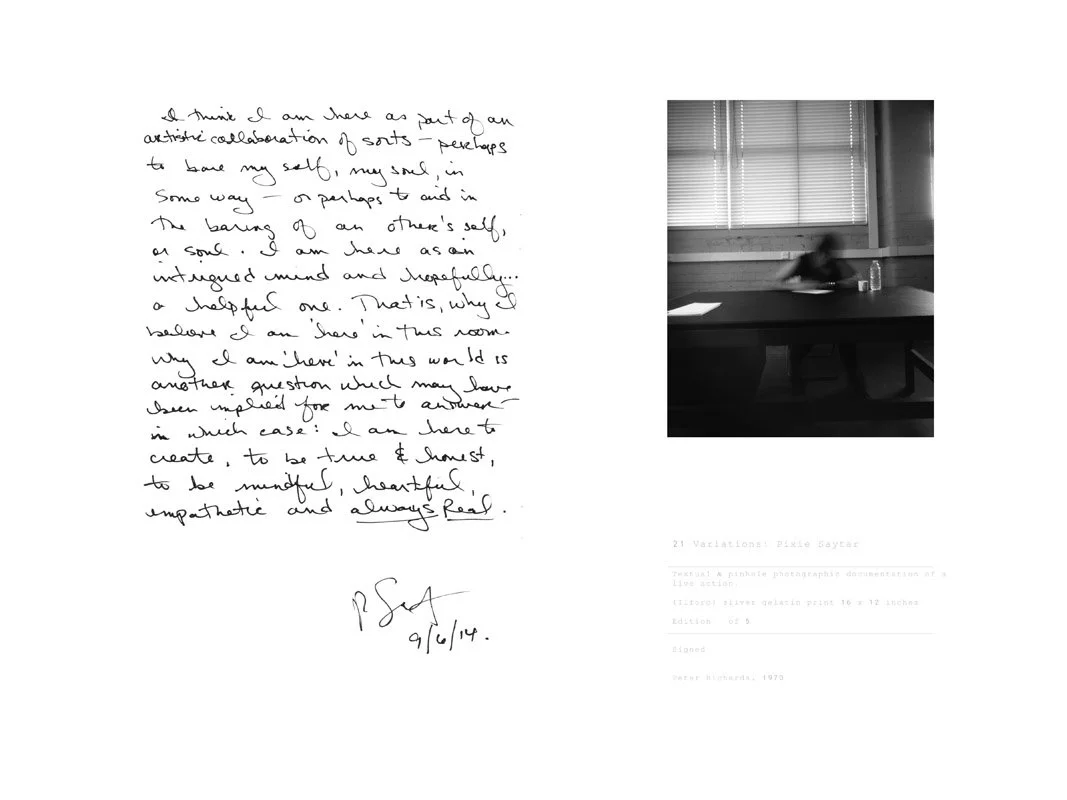 I think I am here as part of an
artistic collaboration of sorts – perhaps
to bare my self, my soul, in
some way – or perhaps to aid in
the baring of an other's self,
or soul. I am here as an
intrigued mind and hopefully...
a helpful one. That is, why I
believe I am 'here' in this room.
Why I am 'here' in this world is
another question which may have
been implied for me to answer –
in which case: I am here to
create, to be true & honest,
to be mindful, heartful,
empathetic and always Real.
9/6/14.
21 Variations: Pixie Sayter
Textual & pinhole photographic documentation of a
live action.
(Ilford) silver gelatin print 16 x 12 inches
Edition of 5
Signed
Peter Richards, 1970